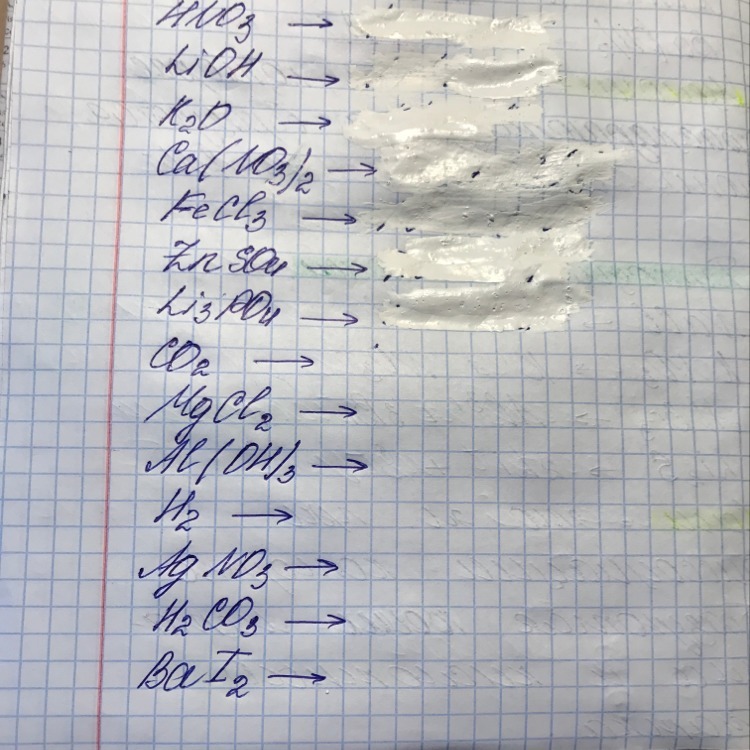 HNO₃ →
LiOH →
K₂O →
Ca(NO₃)₂ →
FeCl₃ →
ZnSO₄ →
Li₃PO₄ →
CO₂ →
MgCl₂ →
Al(OH)₃ →
H₂ →
AgNO₃ →
H₂CO₃ →
BaI₂ →